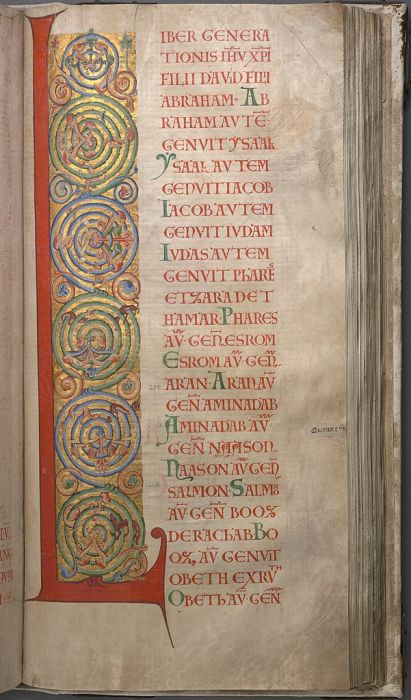 LIBER GENERA
TIONIS IHV XPI
FILII DAVID FILII
ABRAHAM. AB
RAHAM AVTE
GENVIT YSAAK
YSAAK AVTEM
GENVIT IACOB
IACOB AVTEM
GENVIT IVDAM
IVDAS AVTEM
GENVIT PHARES
ET ZARA DE T
HAMAR. PHARES
AV GEN ESROM
ESROM AV GEN
ARAN. ARAN AV
GEN AMINADAB
AMINADAB AV
GEN NAASON.
NAASON AV GEN
SALMON. SALMO
AV GEN BOOZ
DE RACHAB. BO
OZ. AV GENVIT
OBETH EX RVTH
OBETH AV GEN